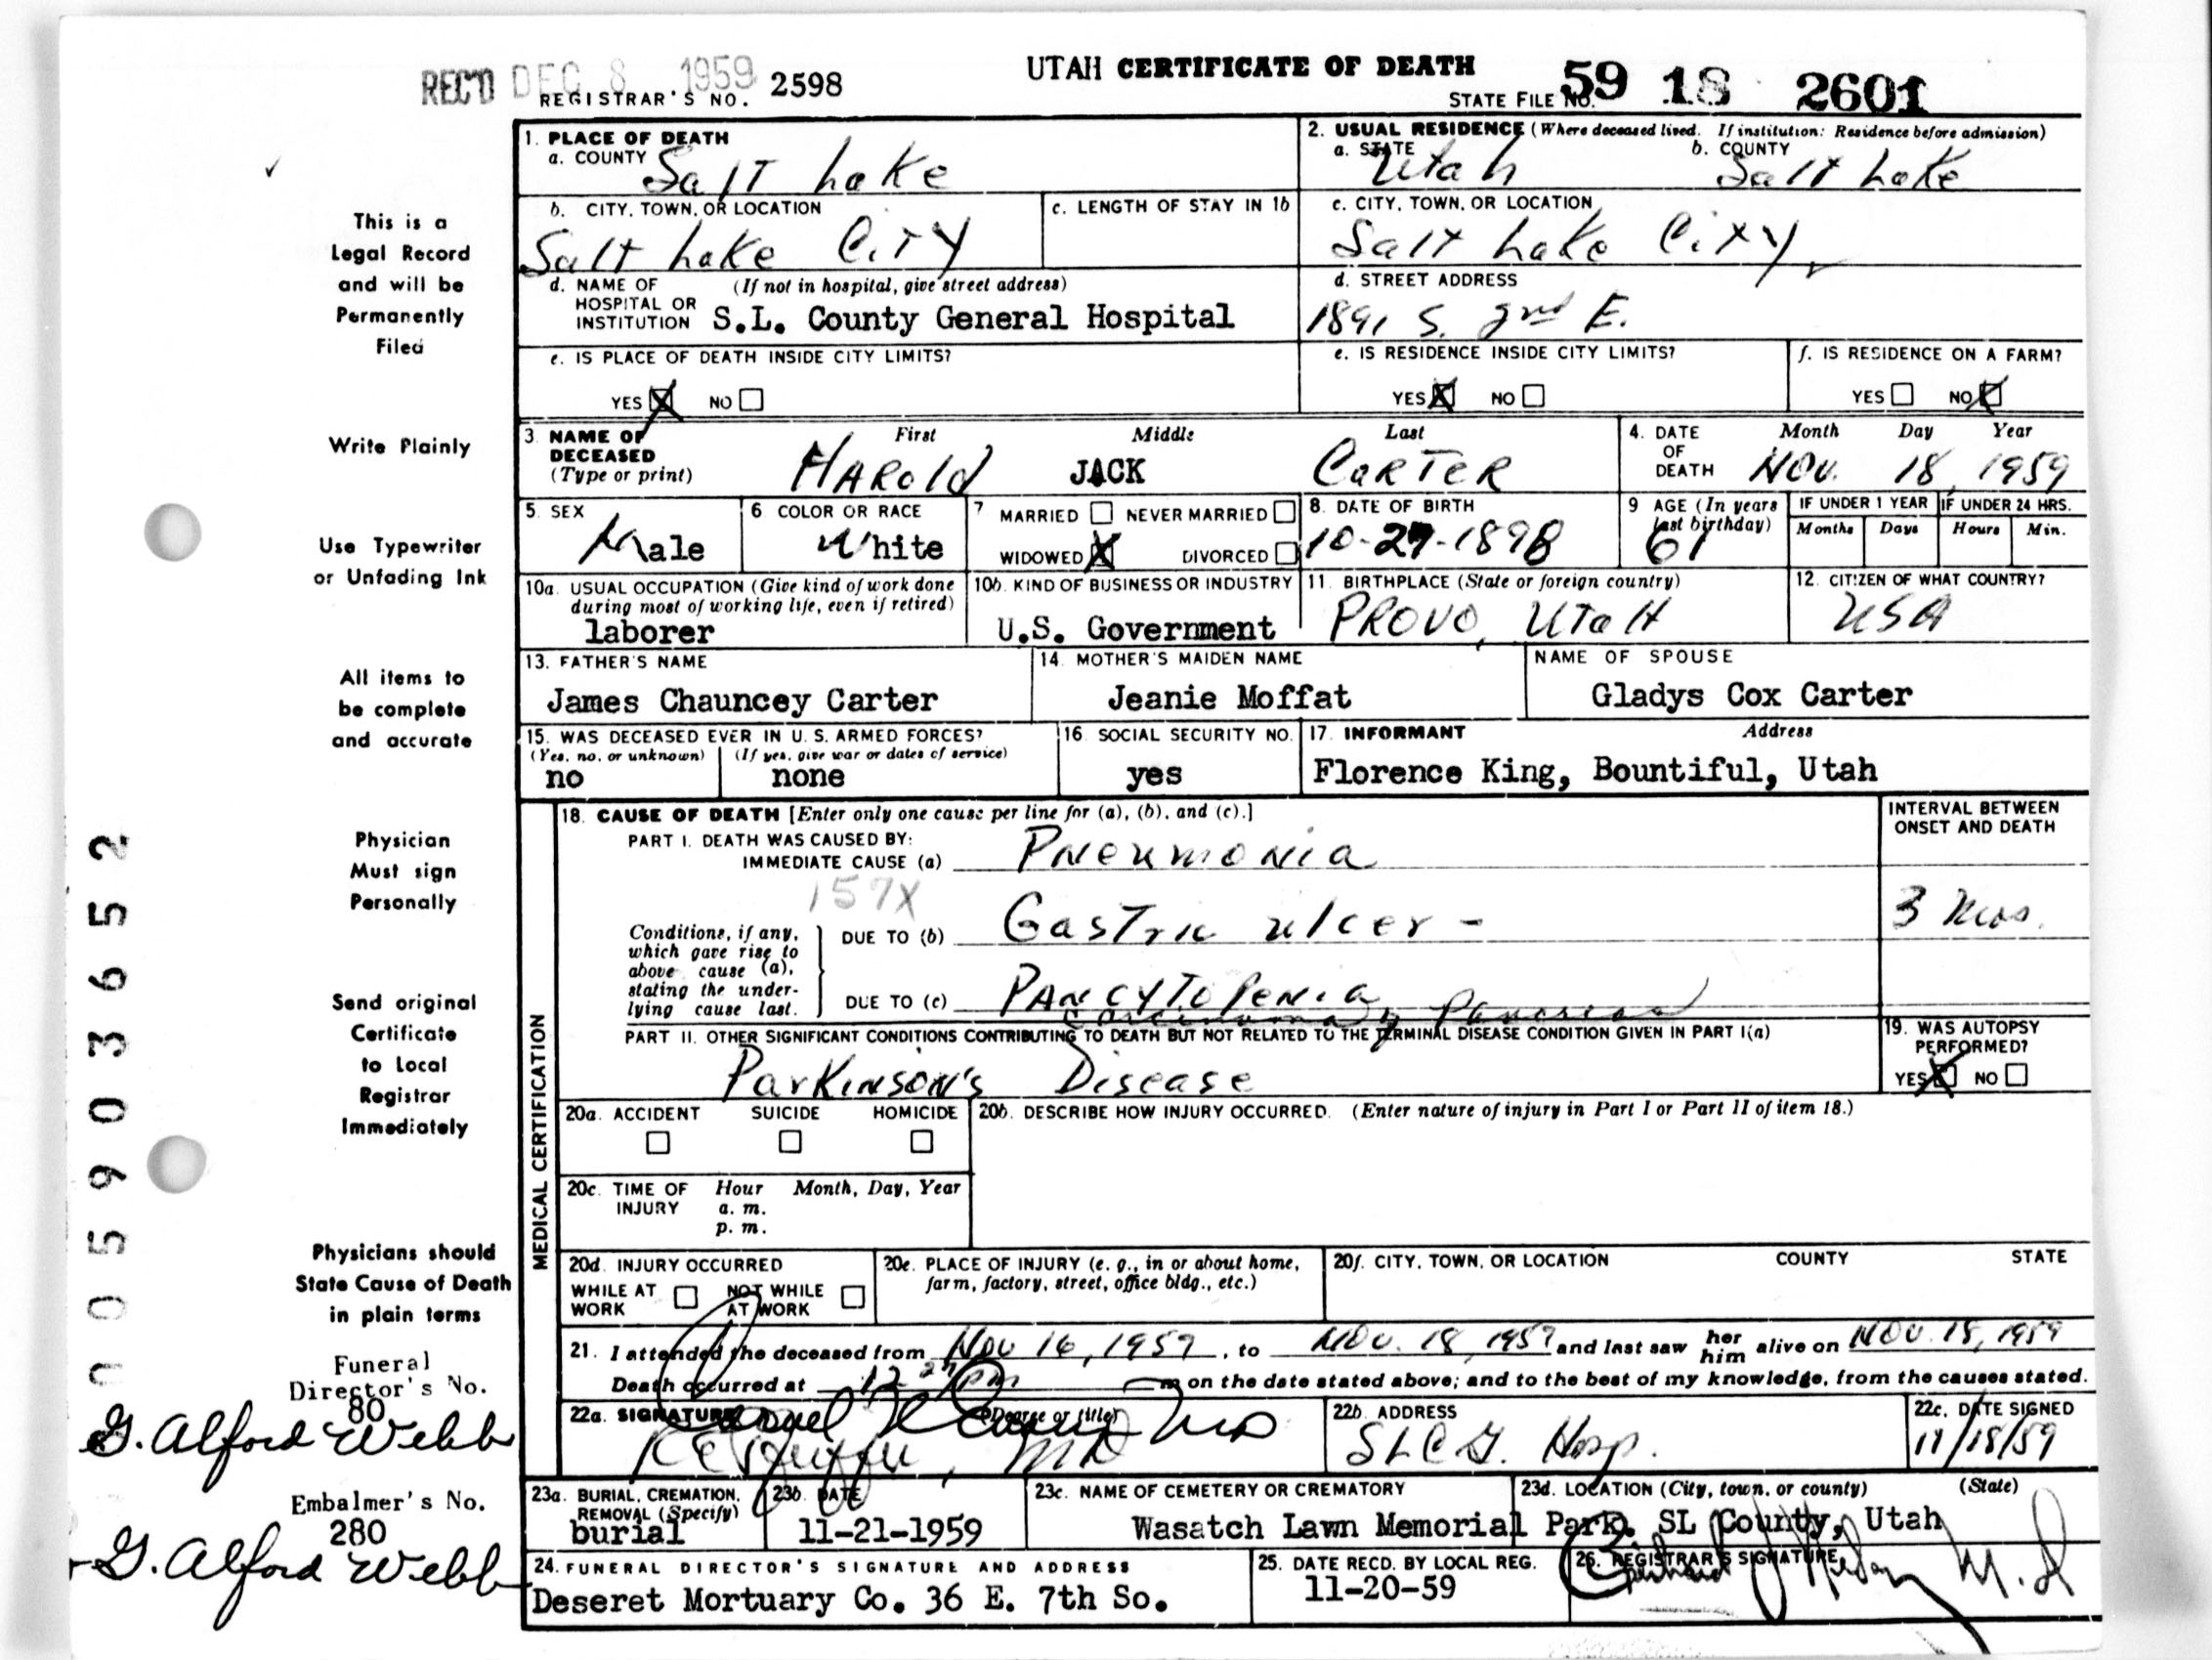 REC'D DEC 8 1959
REGISTRAR'S NO. 2598
UTAH CERTIFICATE OF DEATH
STATE FILE NO. 59 18 2601
This is a
Legal Record
and will be
Permanently
Filed
Write Plainly
Use Typewriter
or Unfading Ink
All items to
be complete
and accurate
Physician
Must sign
Personally
Send original
Certificate
to Local
Registrar
Immediately
Physicians should
State Cause of Death
in plain terms
Funeral
Director's No.
80
G. Alford Webb
Embalmer's No.
280
G. Alford Webb
005903652
1. PLACE OF DEATH
a. COUNTY Salt Lake
2. USUAL RESIDENCE (Where deceased lived. If institution: Residence before admission)
a. STATE Utah b. COUNTY Salt Lake
b. CITY, TOWN, OR LOCATION
Salt Lake City
c. LENGTH OF STAY IN 1b
c. CITY, TOWN, OR LOCATION
Salt Lake City
d. NAME OF (If not in hospital, give street address)
HOSPITAL OR
INSTITUTION S.L. County General Hospital
d. STREET ADDRESS
1891 S. 2nd E.
e. IS PLACE OF DEATH INSIDE CITY LIMITS?
YES X NO
e. IS RESIDENCE INSIDE CITY LIMITS?
YES X NO
f. IS RESIDENCE ON A FARM?
YES NO X
3. NAME OF DECEASED (Type or print)
First Middle Last
HAROLD JACK CARTER
4. DATE OF DEATH
Month Day Year
Nov. 18, 1959
5. SEX
Male
6. COLOR OR RACE
White
7 MARRIED NEVER MARRIED
WIDOWED X DIVORCED
8. DATE OF BIRTH
10-27-1898
9 AGE (In years last birthday)
61
IF UNDER 1 YEAR IF UNDER 24 HRS.
Months Days Hours Min.
10a. USUAL OCCUPATION (Give kind of work done
during most of working life, even if retired)
laborer
10b. KIND OF BUSINESS OR INDUSTRY
U.S. Government
11. BIRTHPLACE (State or foreign country)
PROVO, UTAH
12. CITIZEN OF WHAT COUNTRY?
USA
13. FATHER'S NAME
James Chauncey Carter
14. MOTHER'S MAIDEN NAME
Jeanie Moffat
NAME OF SPOUSE
Gladys Cox Carter
15. WAS DECEASED EVER IN U.S. ARMED FORCES?
(Yes, no, or unknown) (If yes, give war or dates of service)
no none
16. SOCIAL SECURITY NO.
yes
17. INFORMANT Address
Florence King, Bountiful, Utah
MEDICAL CERTIFICATION
18. CAUSE OF DEATH [Enter only one cause per line for (a), (b), and (c).]
INTERVAL BETWEEN
ONSET AND DEATH
PART I. DEATH WAS CAUSED BY:
IMMEDIATE CAUSE (a) Pneumonia
157X
Conditions, if any,
which gave rise to
above cause (a),
stating the under-
lying cause last.
DUE TO (b) Gastric ulcer - 3 mos.
DUE TO (c) Pancytopenia
Carcinoma of Pancreas
PART II. OTHER SIGNIFICANT CONDITIONS CONTRIBUTING TO DEATH BUT NOT RELATED TO THE TERMINAL DISEASE CONDITION GIVEN IN PART I(a)
Parkinson's Disease
19. WAS AUTOPSY
PERFORMED?
YES X NO
20a. ACCIDENT SUICIDE HOMICIDE
20b. DESCRIBE HOW INJURY OCCURRED. (Enter nature of injury in Part I or Part II of item 18.)
20c. TIME OF INJURY
Hour Month, Day, Year
a. m.
p. m.
20d. INJURY OCCURRED
WHILE AT WORK NOT WHILE AT WORK
20e. PLACE OF INJURY (e. g., in or about home,
farm, factory, street, office bldg., etc.)
20f. CITY, TOWN, OR LOCATION COUNTY STATE
21. I attended the deceased from Nov 16, 1959, to Nov. 18, 1959 and last saw her him alive on Nov. 18, 1959
Death occurred at pm m on the date stated above; and to the best of my knowledge, from the causes stated.
22a. SIGNATURE (Degree or title)
MD
MD
22b. ADDRESS
SLCG. Hosp.
22c. DATE SIGNED
11/18/59
23a. BURIAL, CREMATION,
REMOVAL (Specify)
burial
23b. DATE
11-21-1959
23c. NAME OF CEMETERY OR CREMATORY
23d. LOCATION (City, town, or county) (State)
Wasatch Lawn Memorial Park. SL County, Utah
24. FUNERAL DIRECTOR'S SIGNATURE AND ADDRESS
Deseret Mortuary Co. 36 E. 7th So.
25. DATE RECD. BY LOCAL REG.
11-20-59
26. REGISTRAR'S SIGNATURE
M.D